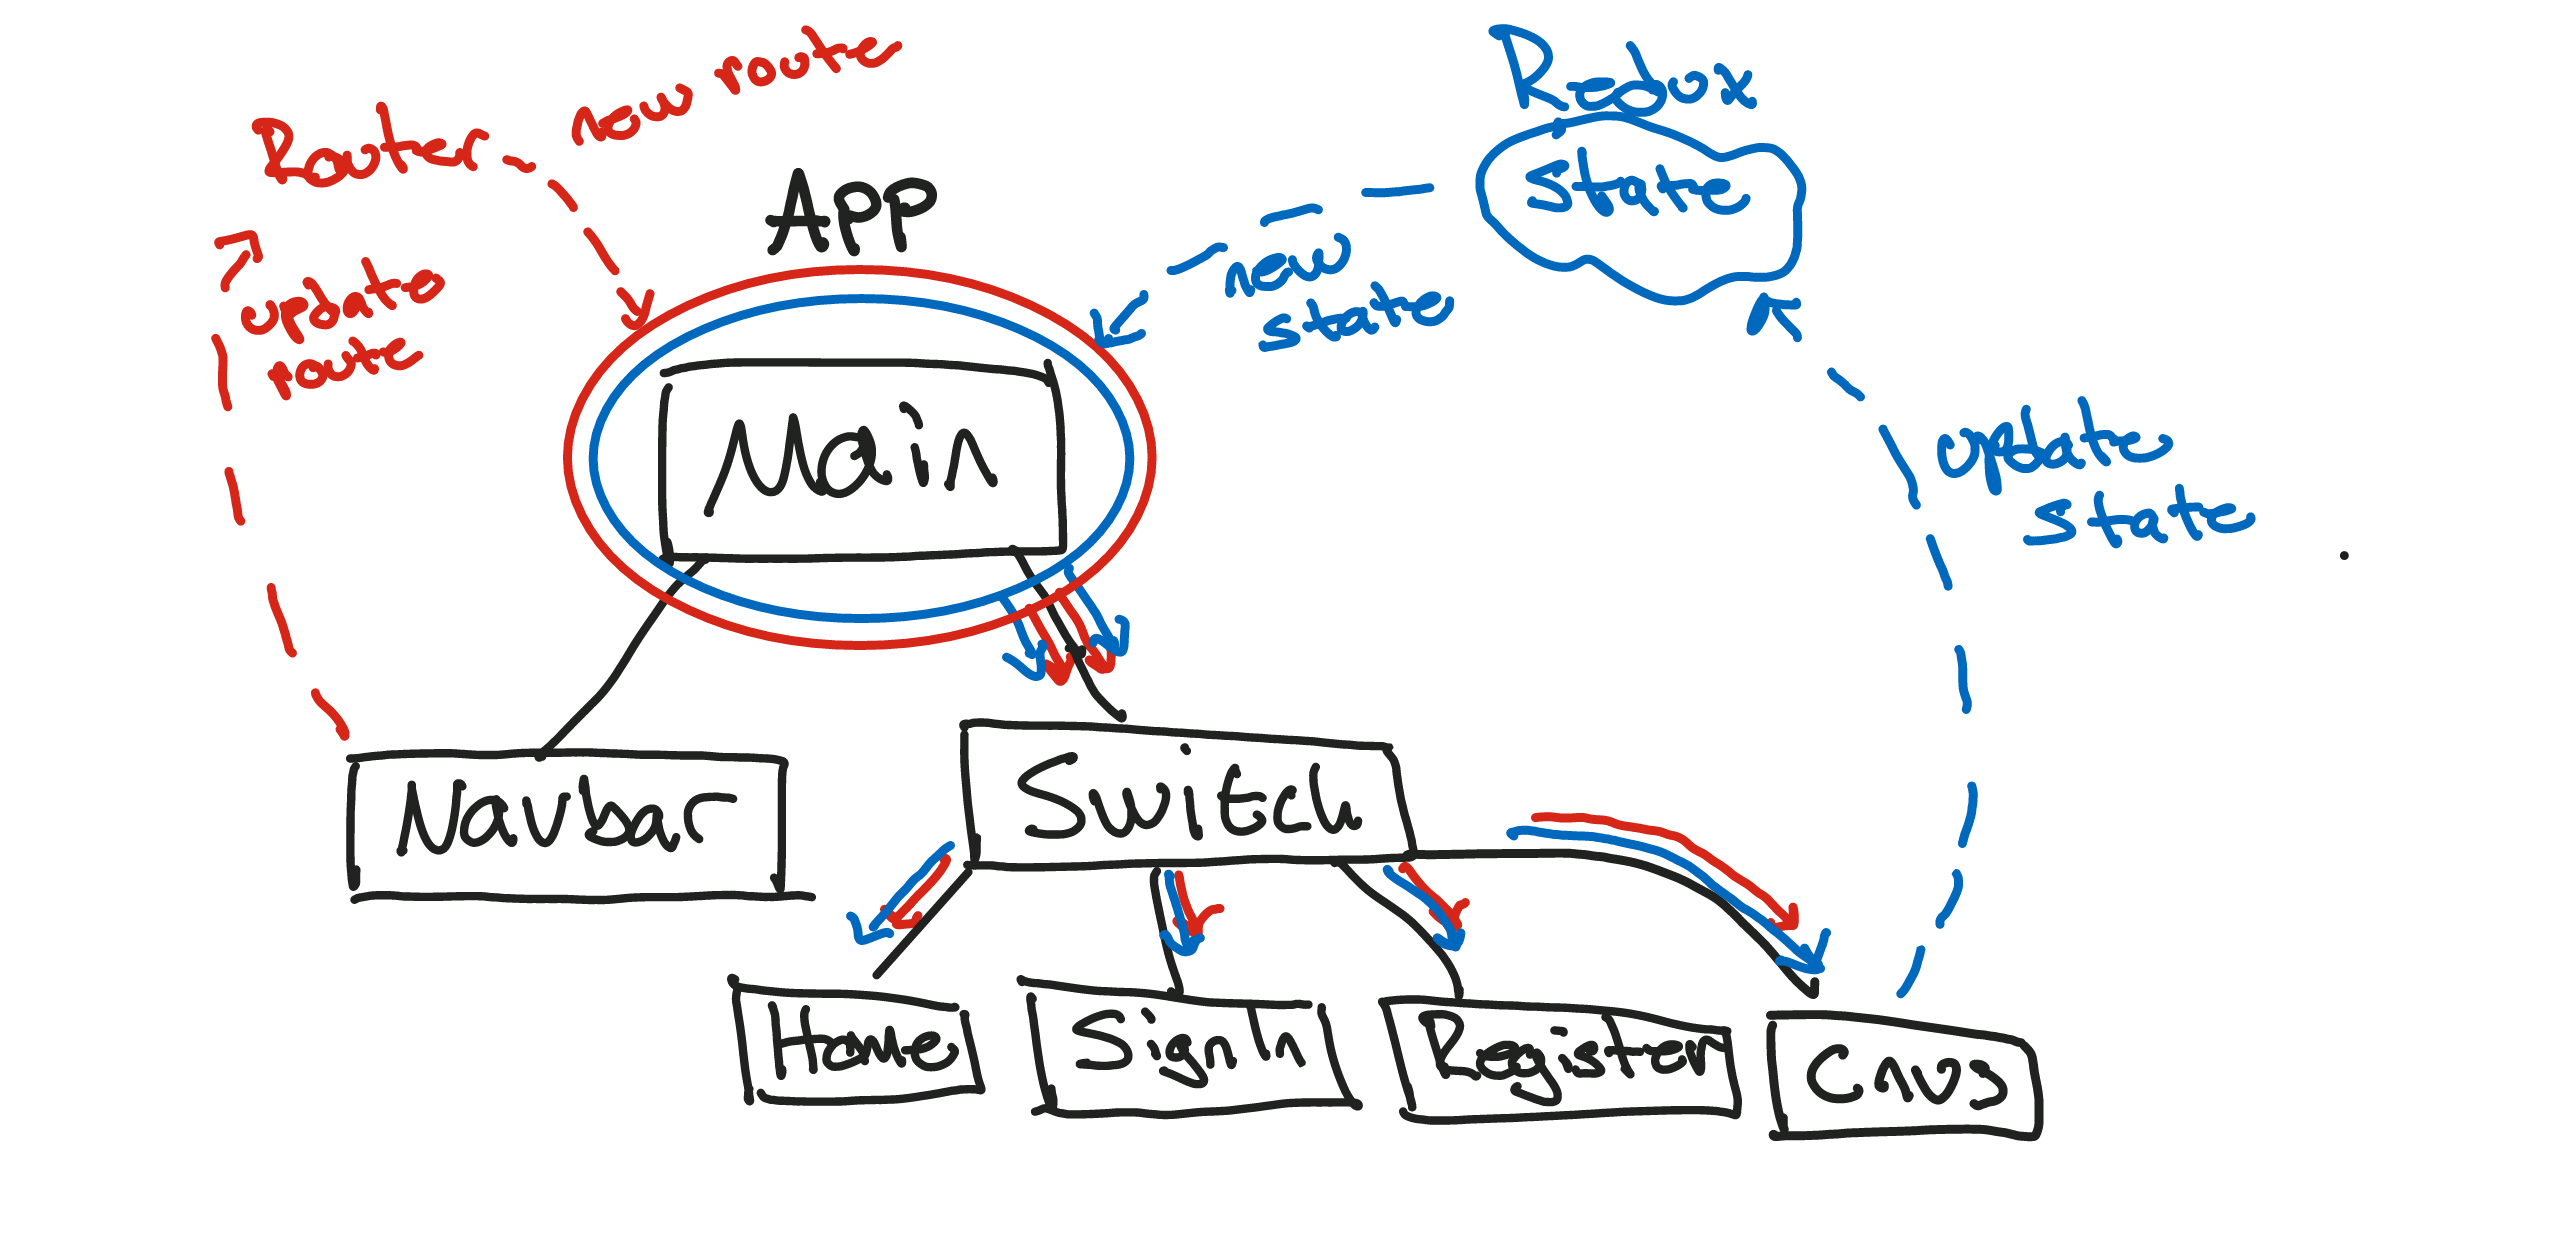 Router
new route
App
Redux
state
update
route
new
state
Main
update
state
Navbar
Switch
Home
SignIn
Register
Cnvs